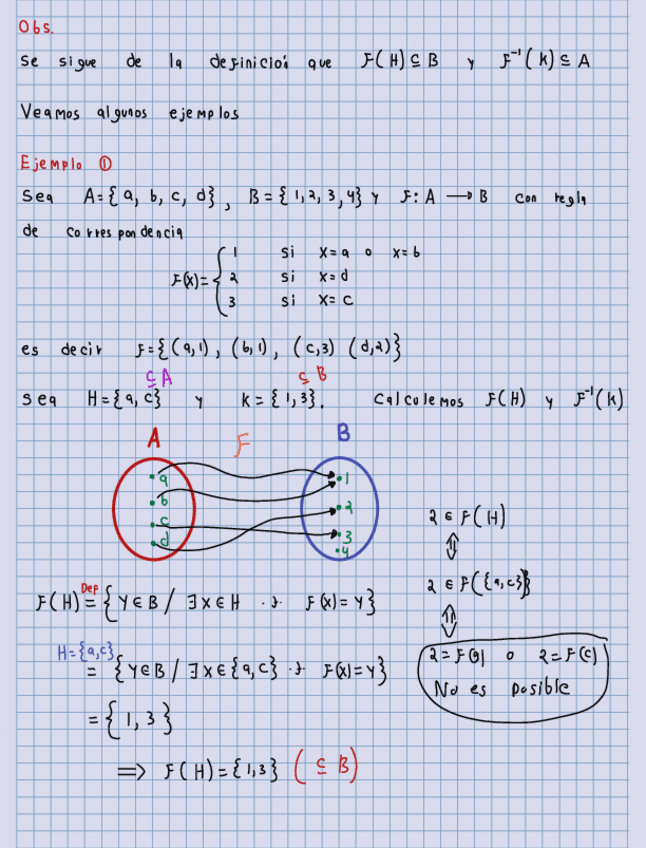 Obs.
Se sigue de la definición que F(H) ⊆ B y F⁻¹(K) ⊆ A
Veamos algunos ejemplos
Ejemplo ①
Sea A={a, b, c, d}, B={1,2,3,4} y F: A → B con regla
de correspondencia
F(x)= { 1 si x=a o x=b
2 si x=d
3 si x=c
es decir F={(a,1), (b,1), (c,3) (d,2)}
⊆A ⊆ B
sea H={a,c} y K={1,3}. Calculemos F(H) y F⁻¹(K)
A F B
a 1
b 2
c 3
d 4
F(H) = {y∈B / ∃x∈H .). F(x)=y}
Def
H={a,c}
= {y∈B / ∃x∈{a,c} .). F(x)=y}
= {1,3}
⟹ F(H)={1,3} (⊆ B)
2 ∈ F(H)
⇕
2 ∈ F({a,c})
⇕
2=F(a) o 2=F(c)
No es posible